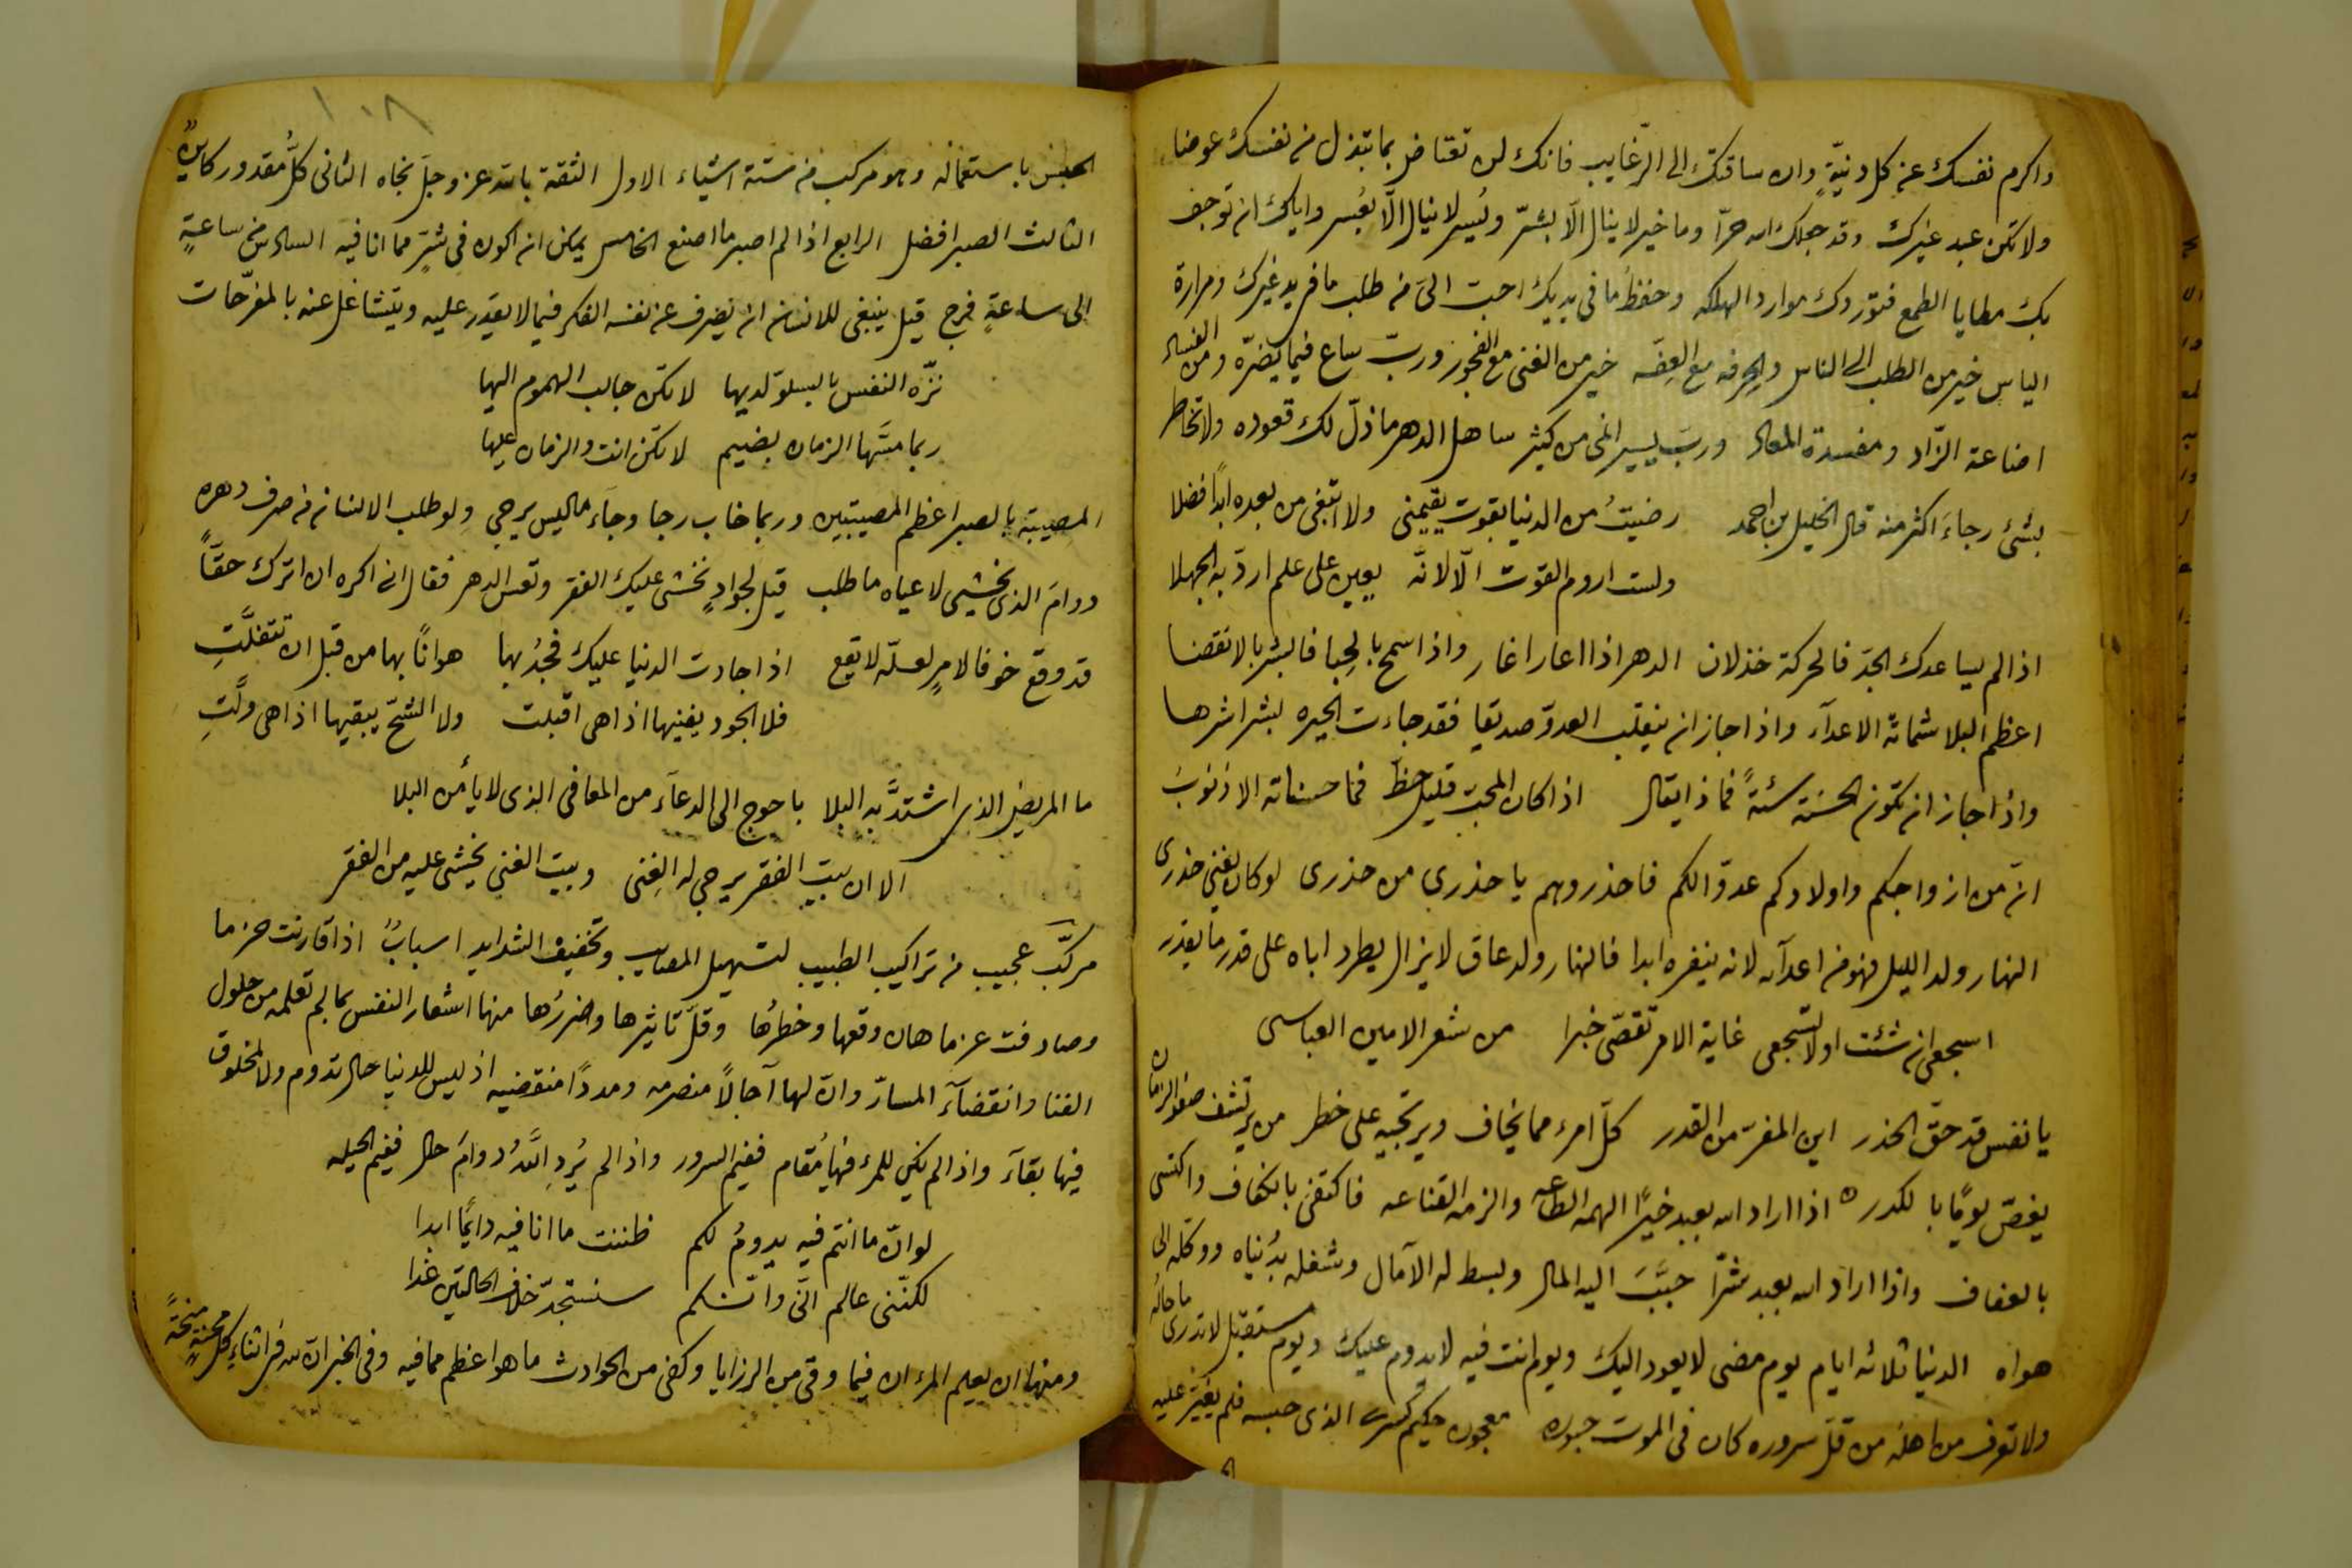 واكرم نفسك عن كل دنيّةٍ وان ساقتك الى الرّغايب فانك لن تعتاض بما تبذل من نفسك عوضا
ولا تكن عبد غيرك وقد جعلك الله حرّا وما خير لا ينال الّا بشرّ ويُسر لا ينال الّا بعُسر واياك ان توجف
بك مطايا الطمع فتوردك موارد الهلكه وحفظُ ما فى يديك احبّ الىّ من طلب ما فى يد غيرك ومرارة
الياس خير من الطلب الى الناس والحِرفه مع العِفّه خير من الغنى مع الفجور وربّ ساع فيما يضرّه ومن الفساد
اضاعة الزّاد ومفسدة المعاد وربّ يسير انمى من كثير ساهل الدهر ما ذلّ لك قعوده ولا تخاطر
بشئ رجاءَ اكثر منه قال الخليل بن احمد رضيتُ من الدنيا بقوت يقيمنى ولا ابتغى من بعده ابداً فضلا
ولست اروم القوت الّا لانّه يعين على علم اردّ به الجهلا
اذا لم يساعدك الجدّ فالحركة خذلان الدهر اذا اعار اغار واذا سمح بالحِبا فابشر بالانقضا
اعظم البلا شماتة الاعدآء واذا جاز ان ينقلب العدوّ صديقا فقد جاءت الحيره بشرّ اشرها
واذا جاز ان تكون الحسنة سئةً فماذا يقال اذا كان المحبّ قليل حظّ فما حسناته الا ذنوبُ
انّ من ازواجكم واولادكم عدوّا لكم فاحذروهم يا حذرى من حذرى لو كان يغنى حذرى
النهار ولد الليل فهو من اعدآئه لانه ينفره ابدا فالنهار ولد عاق لا يزال يطرد اباه على قدر ما يقدر
اسجعى ان شئت او لا تسجعى غاية الامر تقصّى خبرا من شعر الامين العباسى
يا نفس قد حقّ الحذر اين المفرّ من القدر كلّ امرء مما يخاف ويرتجيه على خطر من يرتشف صفو الزمان
يغصّ يومًا بالكدر ه اذا اراد الله بعبد خيرًا الهمه الطاعه والزمه القناعه فاكتفى بالكفاف واكتسى
بالعفاف واذا اراد الله بعبد شرّا حبّبَ اليه المال وبسط له الآمال وشغله بدُنياه ووكله الى
هواه الدنيا ثلاثه ايام يوم مضى لا يعود اليك ويوم انت فيه لا يدوم عليك ويوم مستقبل لا تدرى ما حاله
ولا تعرف من اهله من قلّ سروره كان فى الموت حبوره معجون حكيم كسرى الذى حبسه فلم يغيّر عليه
الح
١٠٨
الحبس باستعماله وهو مركب من ستة اشياء الاول الثقة بالله عز وجلّ نجاه الثانى كلّ مقدور كاينٌ
الثالث الصبر افضل الرابع اذا لم اصبر ما اصنع الخامس يمكن ان اكون فى شرّ مما انا فيه السادس من ساعةٍ
الى ساعةٍ فرج قيل ينبغى للانسان ان يصرف عن نفسه الفكر فيما لا يقدر عليه ويتشاغل عنه بالمفرّحات
نزّه النفس بالسلوّ لديها لا تكن جالب الهموم اليها
ربما مسّها الزمان بضيم لا تكن انت والزمان عليها
المصيبة بالصبر اعظم المصيبتين وربما خاب رجا وجآء ما ليس يرجى ولو طلب الانسان من صرف دهره
دوامَ الذى يخشى لاعياه ما طلب قيل لجوادٍ نخشى عليك الفقر وتعس الدهر فقال انى اكره ان اترك حقّاً
قد وقع خوفا لامرٍ لعلّه لا يقع اذا جادت الدنيا عليك فجُدْ بها هوانًا بها من قبل ان تتفلّتِ
فلا الجود يفنيها اذا هى اقبلت ولا الشحّ يبقيها اذا هى ولّتِ
ما المريض الذى اشتدّ به البلا باحوج الى الدعآء من المعافى الذى لا يأمن البلا
الا ان بيت الفقر يرجى له الغِنى وبيت الغنى يخشى عليه من الفقر
مركّب عجيب من تراكيب الطبيب لتسهيل المصايب وتخفيف الشدايد اسبابٌ اذا قارنت حزما
وصادفت عزما هان وقعها وخطرُها وقلّ تاثيرها وضررُها منها اشعار النفس بما لم تعلمه من حلول
الفنا وانقضآء المسارّ وانّ لها آجالاً منصرمه ومددًا منقضيه اذ ليس للدنيا حال تدوم ولا لمخلوق
فيها بقآء واذا لم يكن للمرء فيها مُقام ففيم السرور واذا لم يُرِدِ اللّٰهُ دوامَ حال ففيم الحيله
لو انّ ما انتم فيه يدومُ لكم ظننت ما انا فيه دايمًا ابدا
لكنّنى عالم انّى وانّكم سنستجدّ خلاف الحالتين غدا
ومنها ان يعلم المرء ان فيما وقى من الرزايا وكفى من الحوادث ما هو اعظم مما فيه وفى الخبر انّ لله فى اثناء كل محنةٍ منحةً